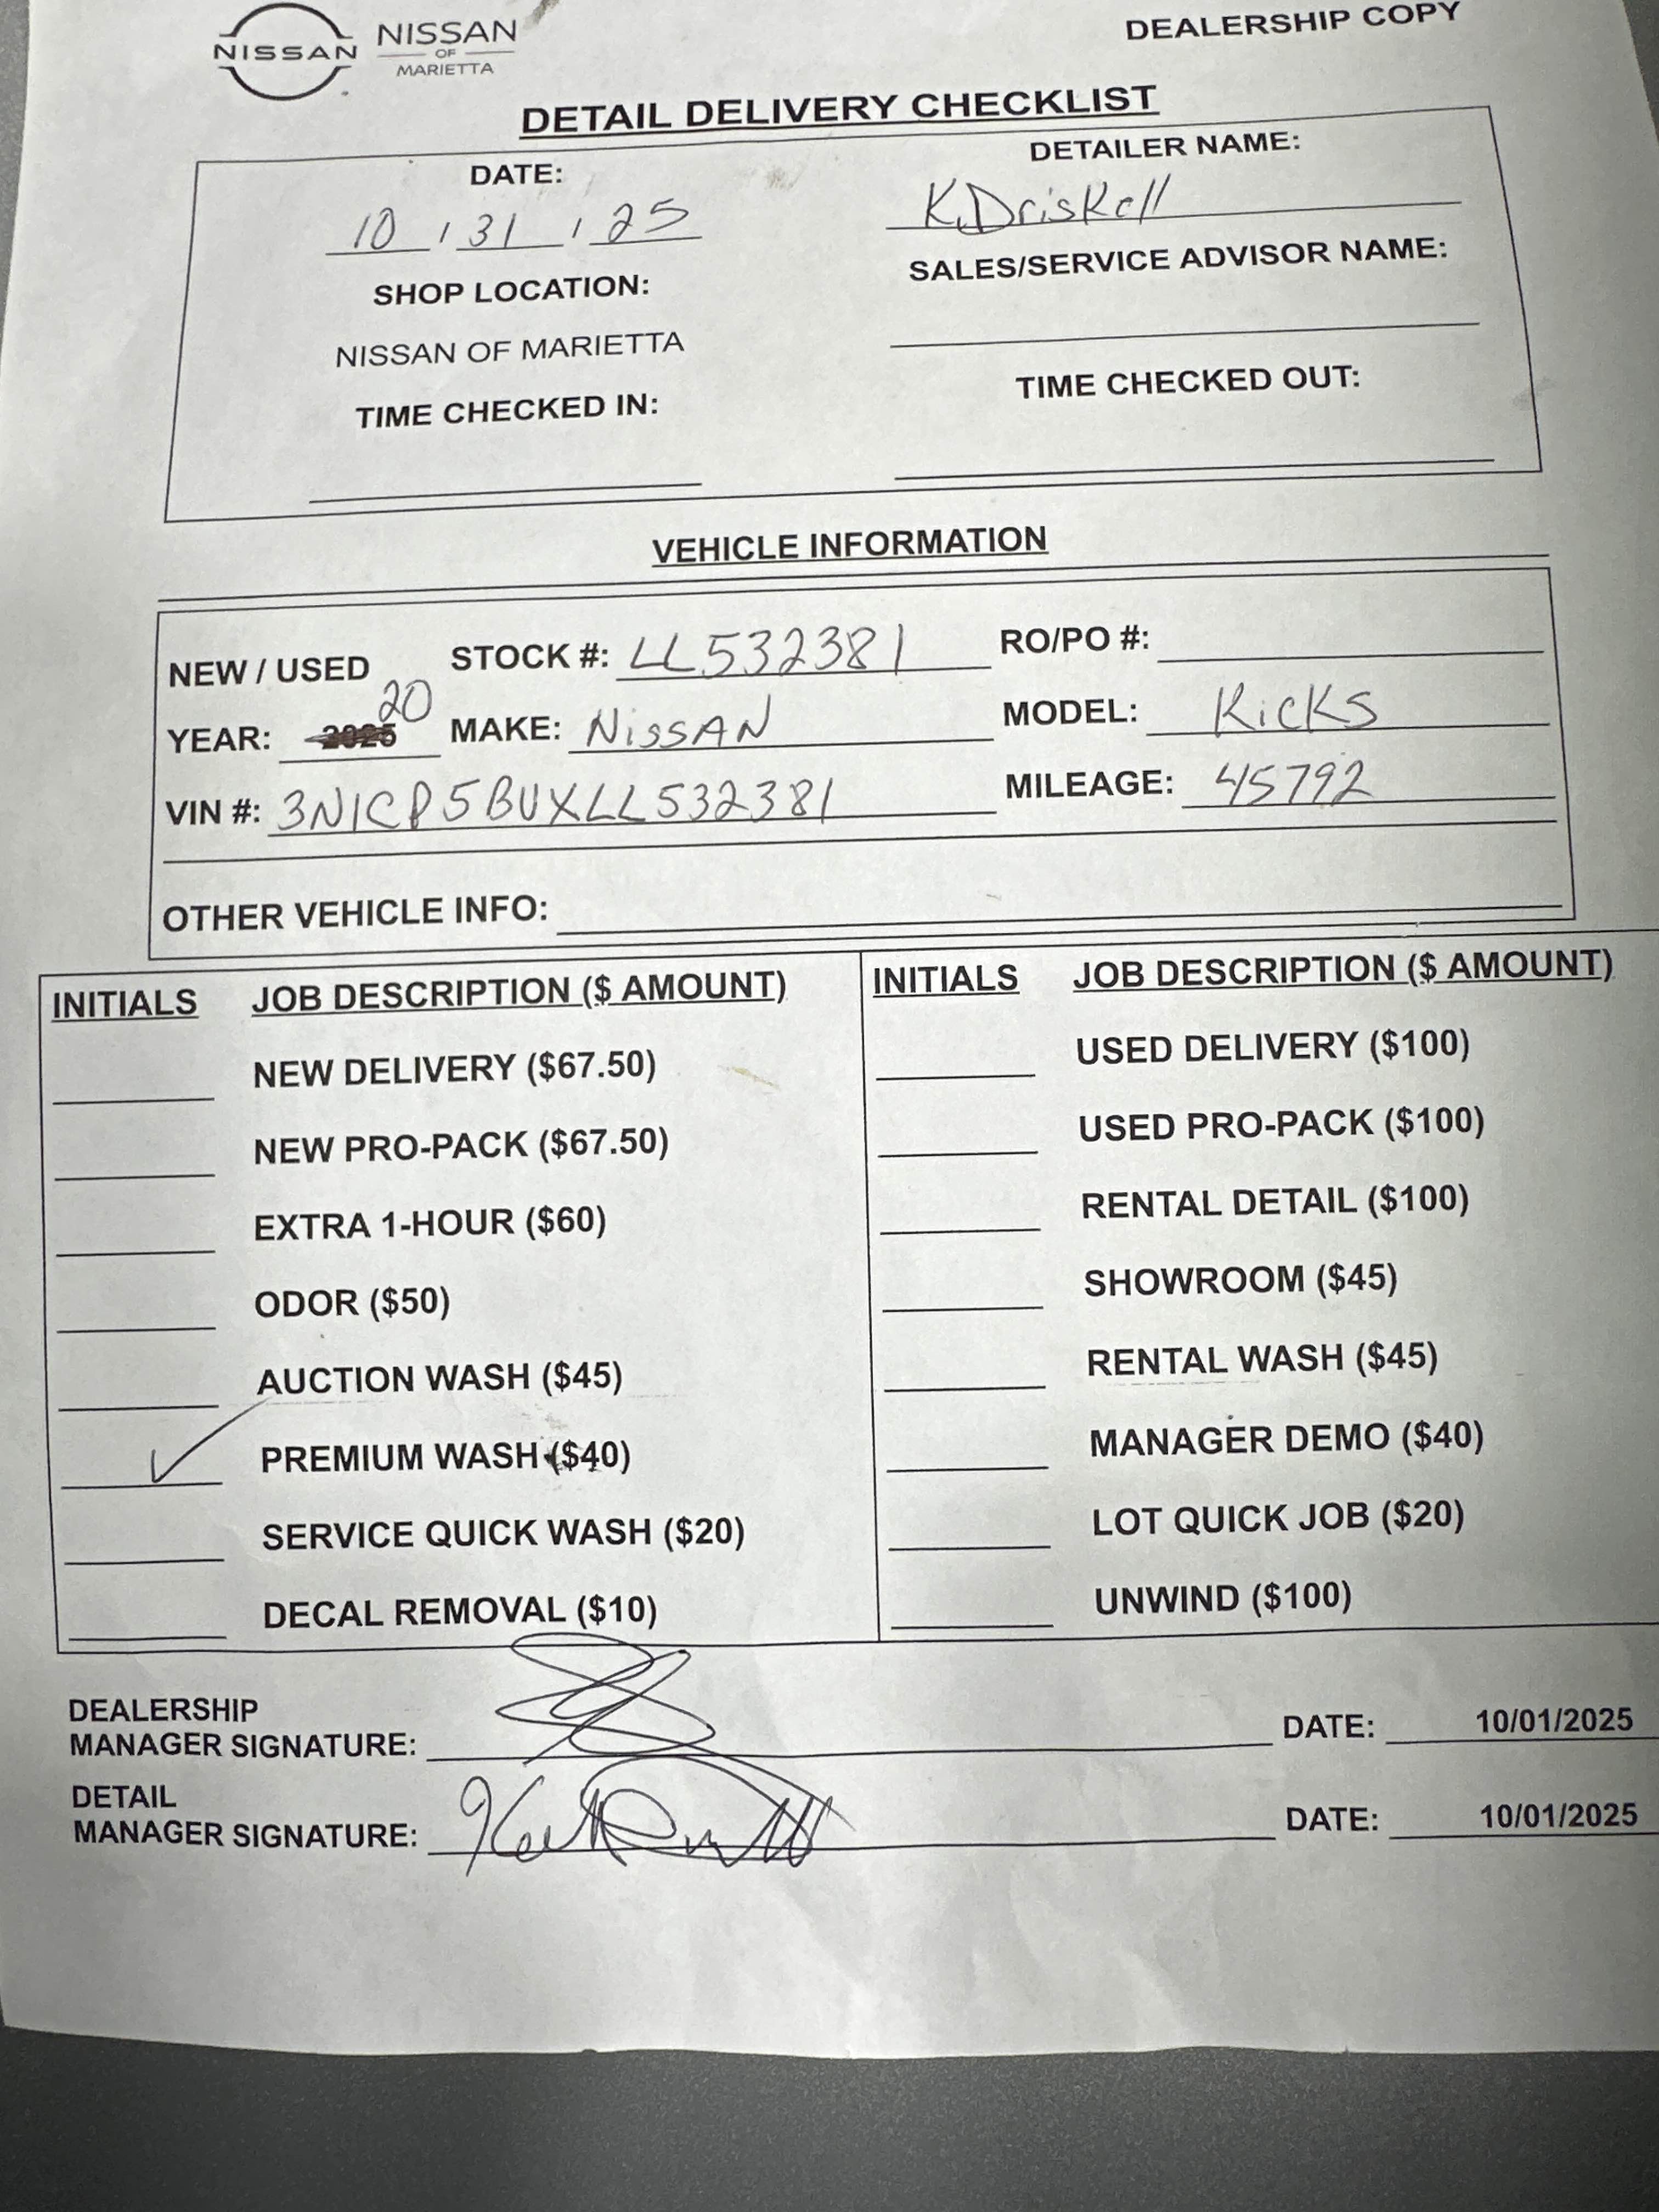 DEALERSHIP COPY
NISSAN
NISSAN
OF
MARIETTA
DETAIL DELIVERY CHECKLIST
DATE:
10 / 31 / 25
DETAILER NAME:
K.Driskell
SHOP LOCATION:
NISSAN OF MARIETTA
SALES/SERVICE ADVISOR NAME:
TIME CHECKED IN:
TIME CHECKED OUT:
VEHICLE INFORMATION
NEW / USED STOCK #: LL532381 RO/PO #:
YEAR: 2025 20 MAKE: NISSAN MODEL: KicKS
VIN #: 3N1CP5BUXLL532381 MILEAGE: 45792
OTHER VEHICLE INFO:
INITIALS JOB DESCRIPTION ($ AMOUNT) INITIALS JOB DESCRIPTION ($ AMOUNT)
NEW DELIVERY ($67.50) USED DELIVERY ($100)
NEW PRO-PACK ($67.50) USED PRO-PACK ($100)
EXTRA 1-HOUR ($60) RENTAL DETAIL ($100)
ODOR ($50) SHOWROOM ($45)
AUCTION WASH ($45) RENTAL WASH ($45)
✓ PREMIUM WASH ($40) MANAGER DEMO ($40)
SERVICE QUICK WASH ($20) LOT QUICK JOB ($20)
DECAL REMOVAL ($10) UNWIND ($100)
DEALERSHIP
MANAGER SIGNATURE: DATE: 10/01/2025
DETAIL
MANAGER SIGNATURE: DATE: 10/01/2025